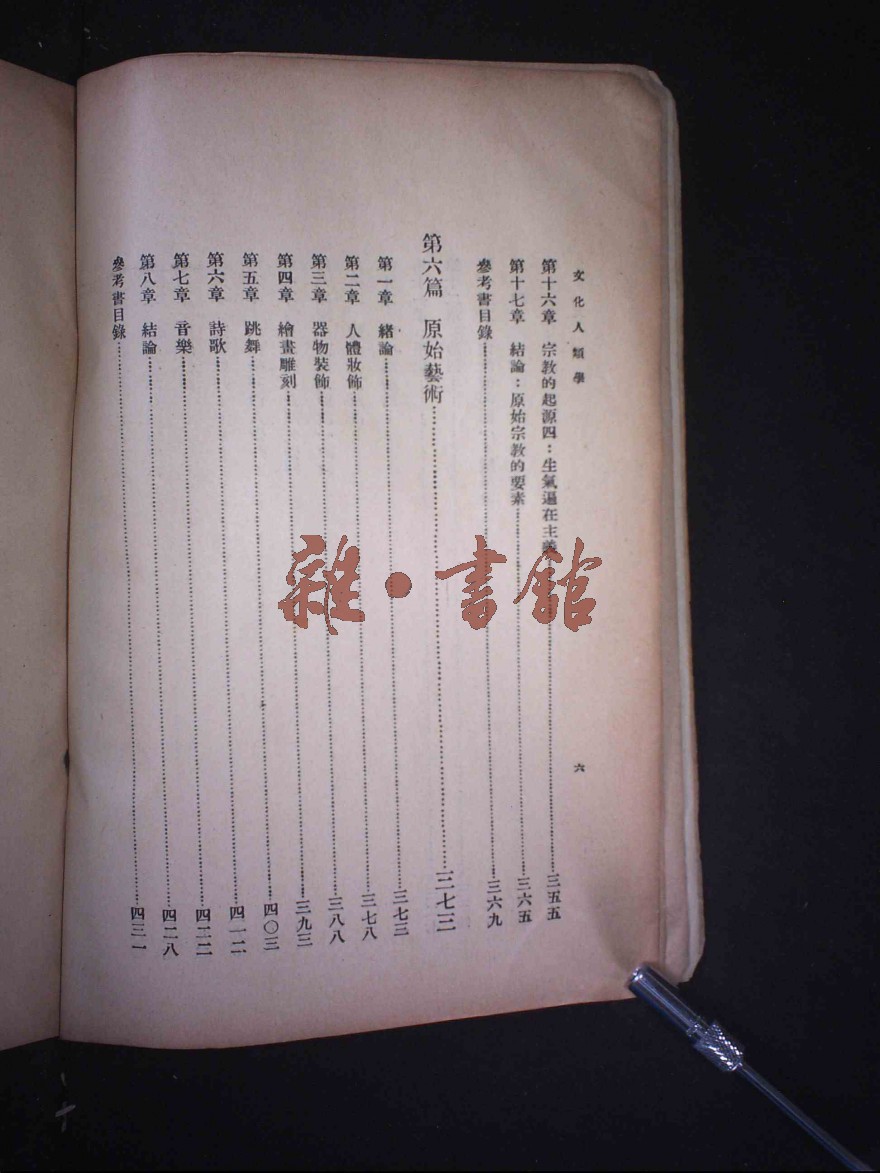 文化人類學
六
第十六章 宗教的起源四：生氣遍在主義……三五五
第十七章 結論：原始宗教的要素……三六五
參考書目錄……三六九
第六篇 原始藝術……三七三
第一章 緒論……三七三
第二章 人體妝飾……三七八
第三章 器物裝飾……三八八
第四章 繪畫雕刻……三九三
第五章 跳舞……四〇三
第六章 詩歌……四一二
第七章 音樂……四二二
第八章 結論……四二八
參考書目錄……四三一
雜·書館